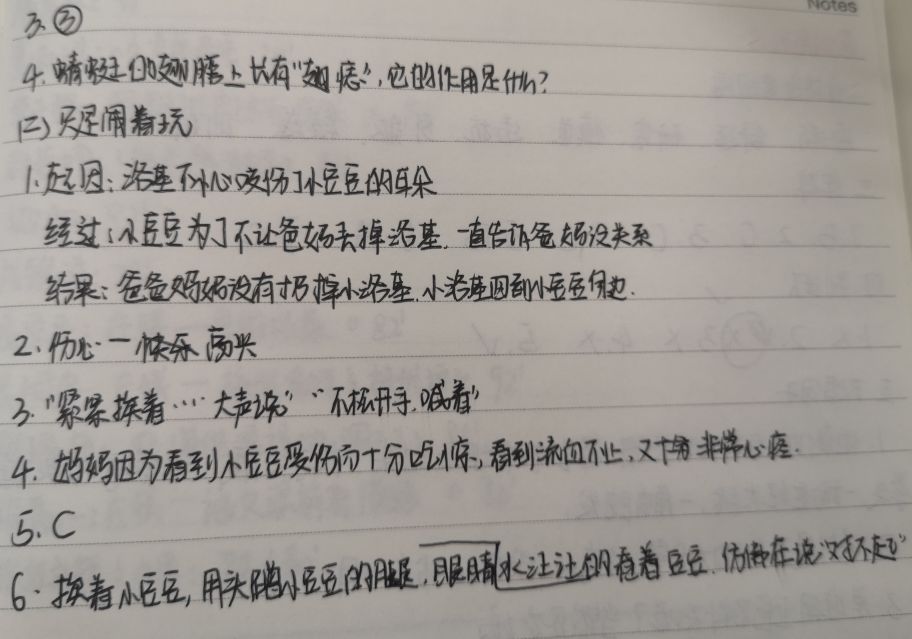 Notes
3. ③
4. 蜻蜓的翅膀上长有“翅痣”,它的作用是什么?
(二) 只是闹着玩
1. 起因: 洛基不小心咬伤了小豆豆的耳朵
经过: 小豆豆为了不让爸妈丢掉洛基. 一直告诉爸妈没关系
结果: 爸爸妈妈没有扔掉小洛基. 小洛基回到小豆豆身边.
2. 伤心 — 快乐 高兴
3. “紧紧挨着……大声说” “不松开手.喊着”
4. 妈妈因为看到小豆豆受伤而十分吃惊, 看到流血不止, 又 非常心疼.
5. C
6. 挨着小豆豆, 用头蹭小豆豆的腿, 眼睛水汪汪的看着豆豆. 仿佛在说“对不起”